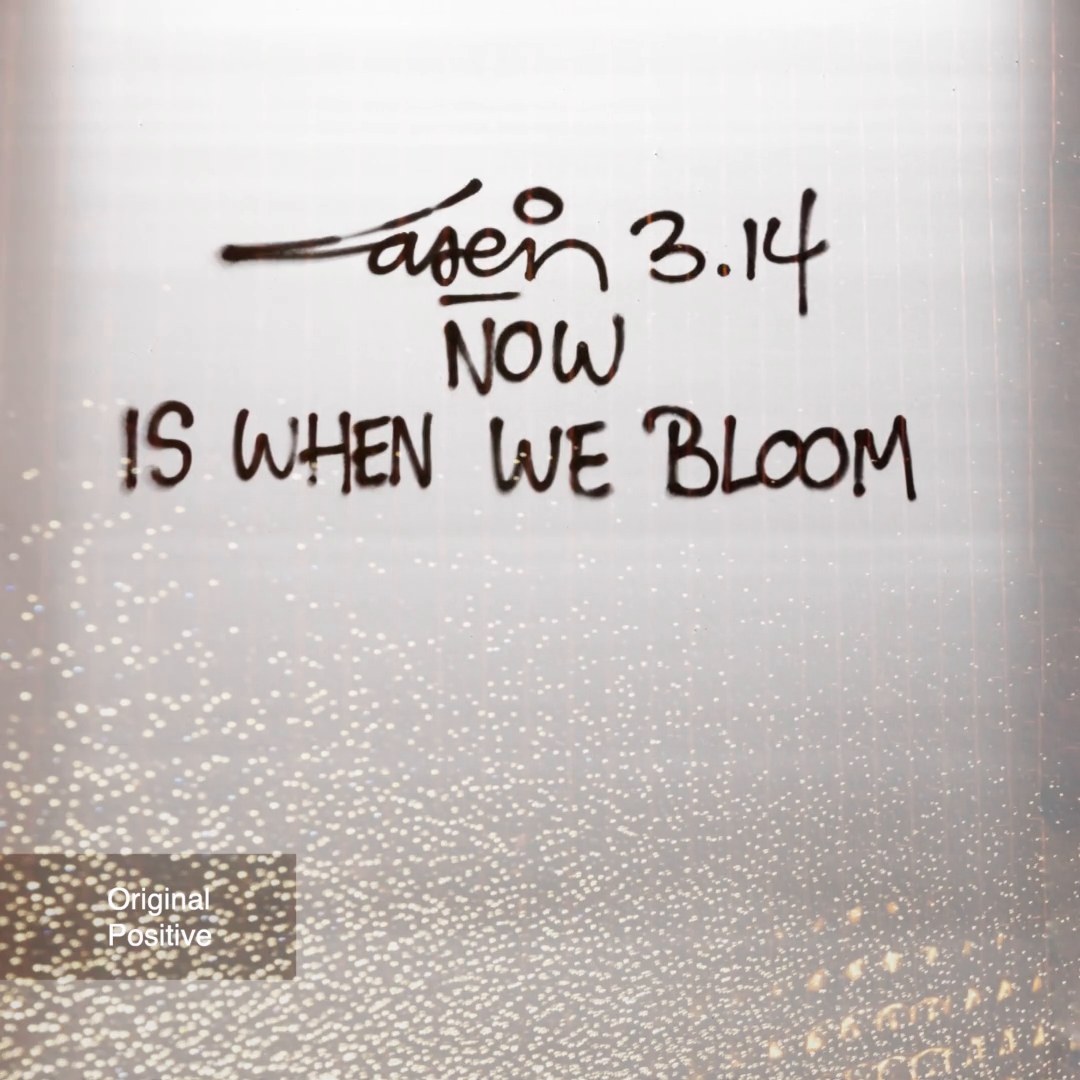 Laser 3.14
NOW
IS WHEN WE BLOOM
Original
Positive